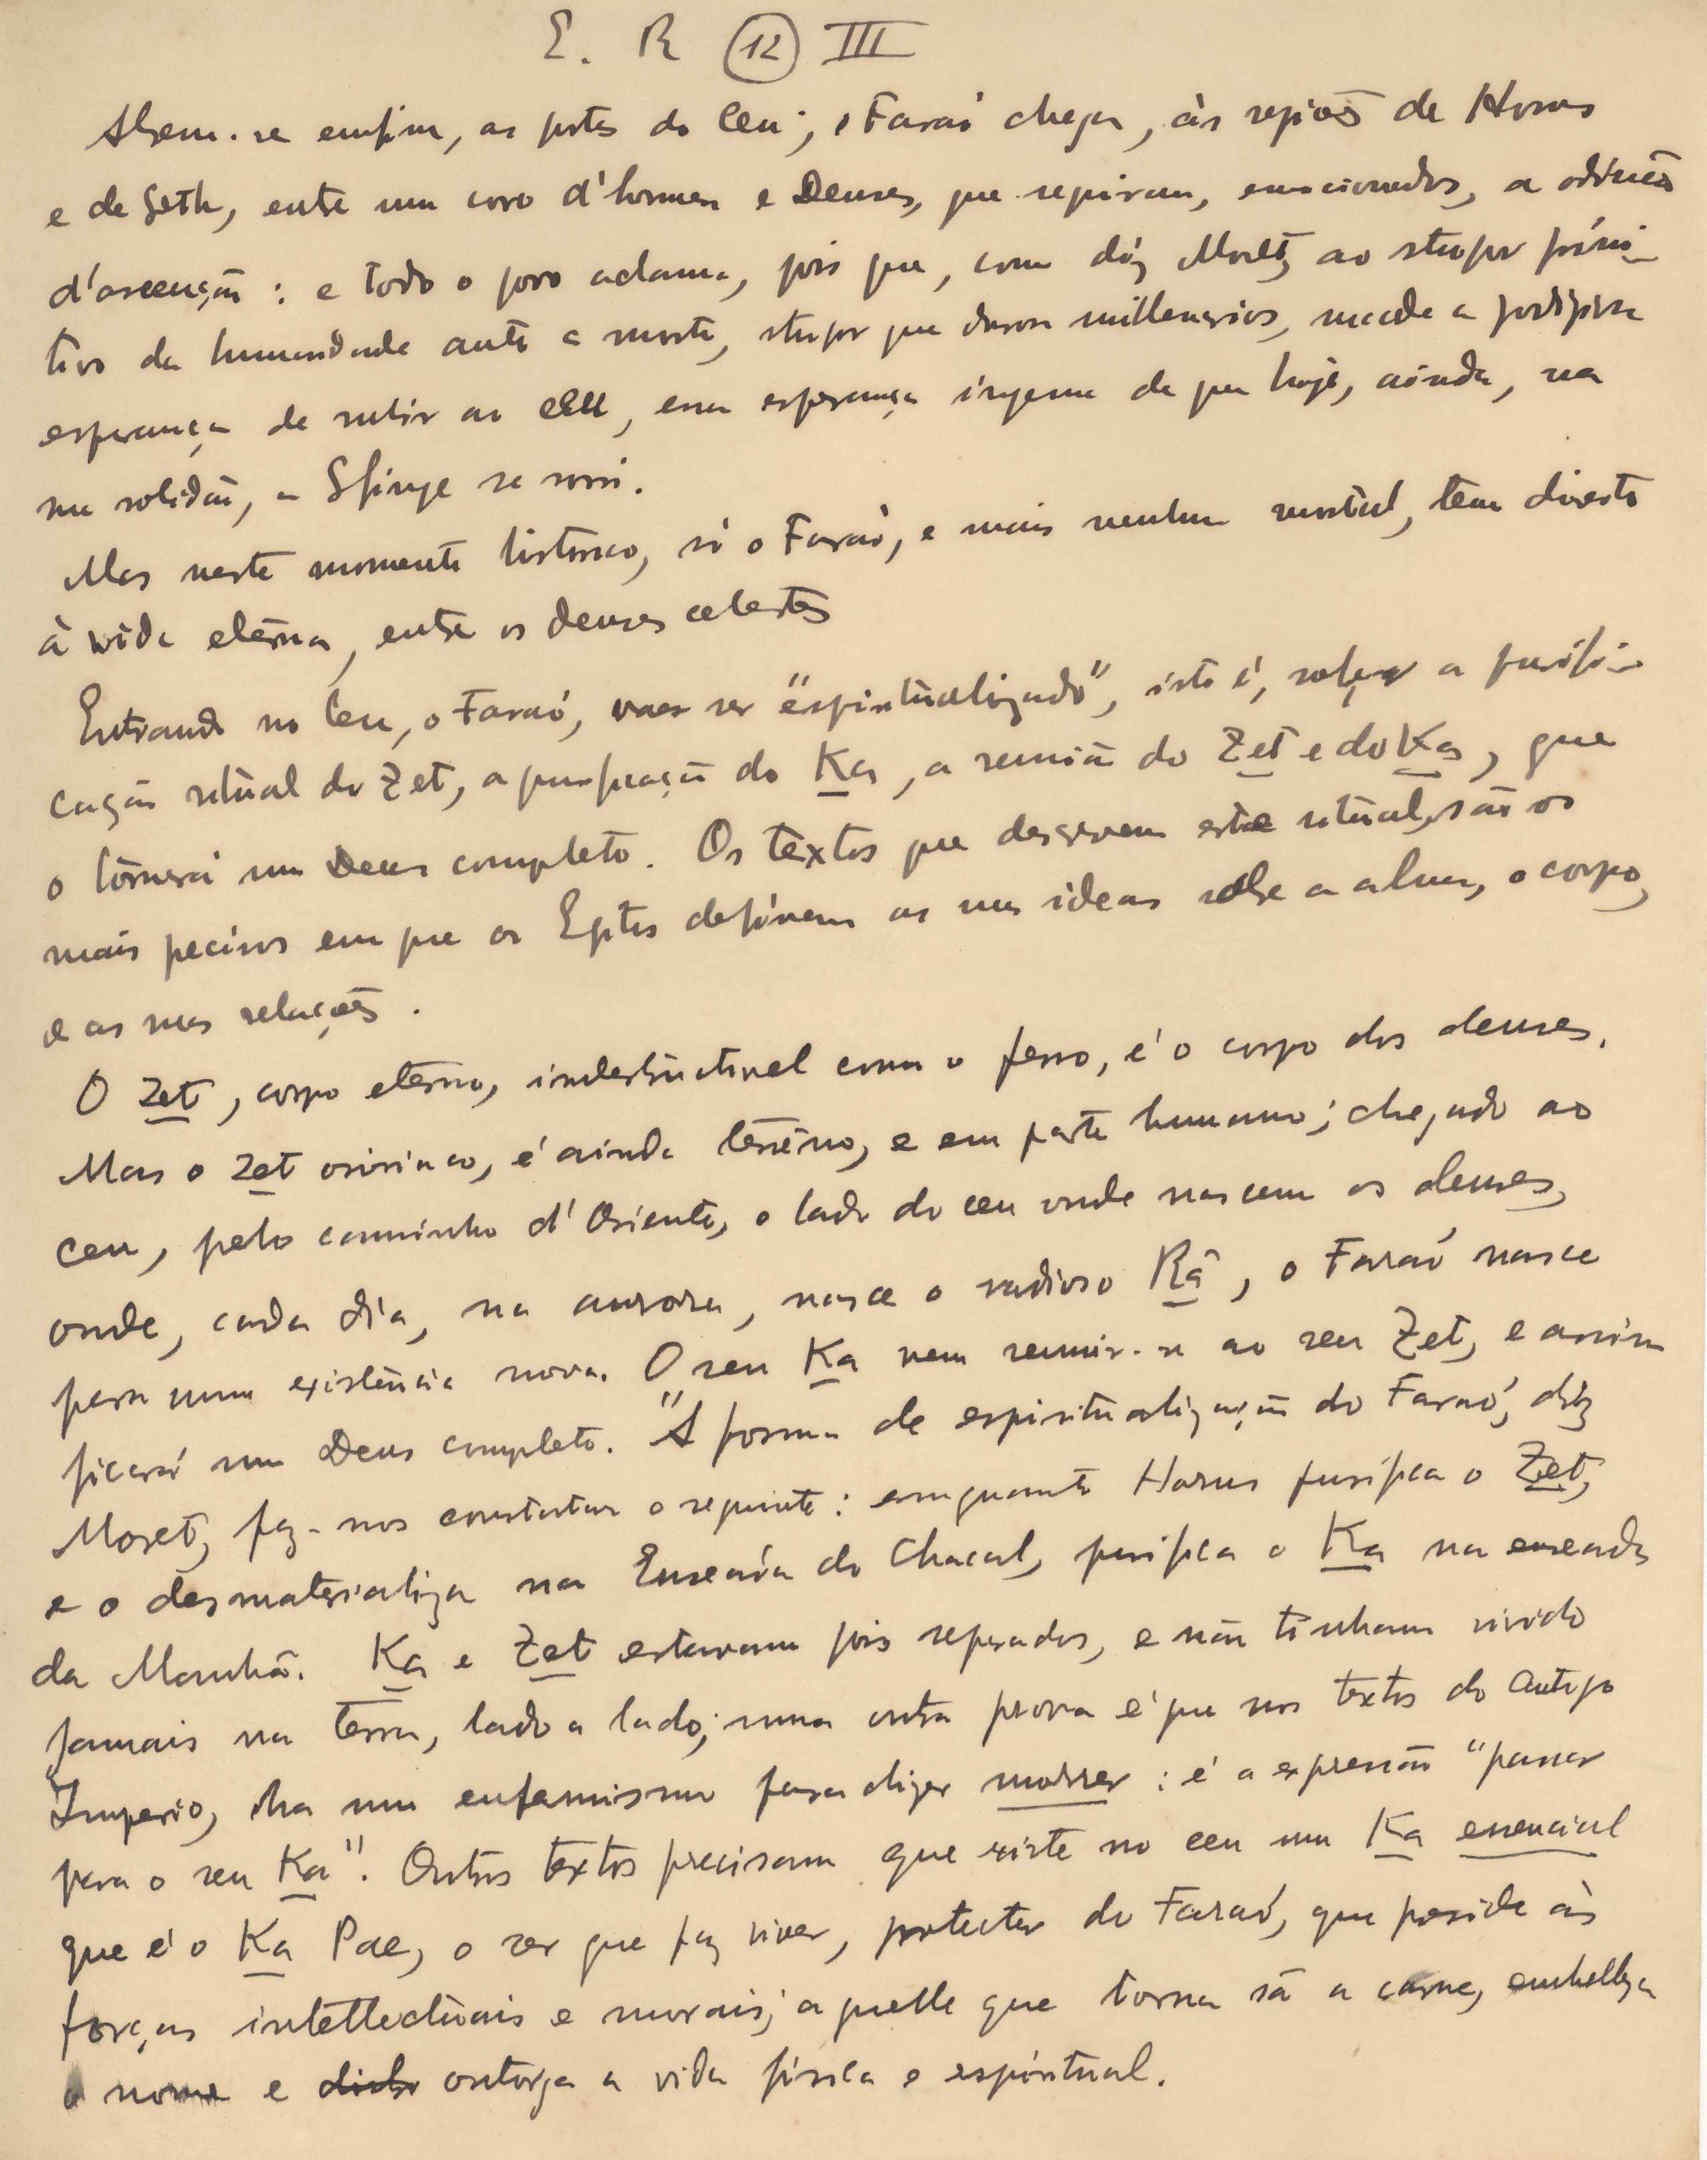 E. R (12) III
Abrem-se emfim, as portas do Ceu; o Faraó chega, às regiões de Horus
e de Seth, entre um coro d'homens e Deuses, que seguiram, emocionados, a
d'ascenção: e todo o povo aclama, pois que, como diz Moret, ao stupor primi-
tivo da humanidade ante a morte, stupor que durou millenarios, sucede a prodigiosa
esperança de subir ao céu, essa esperança ingenua de que hoje, ainda, na
sua solidão, a Sfinge se sorri.
Mas neste momento historico, só o Faraó, e mais nenhum mortal, tem direito
à vida eterna, entre os deuses celestes
Entrando no Ceu, o Faraó, vaes ser "espiritualizado", isto é, sofrer a purifi-
cação ritual do Zet, a purificação do Ka, a reunião do Zet e do Ka, que
o tornará um Deus completo. Os textos que descrevem este ritual, são os
mais precisos em que os Egitos definem as suas ideas sobre a alma, o corpo,
e as suas relações.
O Zet, corpo eterno, indestructivel como o ferro, é o corpo dos deuses.
Mas o Zet osiriaco, é ainda terreno, e em parte humano; chegado ao
ceu, pelo caminho d'Oriente, o lado do ceu onde nascem os deuses,
onde, cada dia, na aurora, nasce o radioso Râ, o Faraó nasce
para uma existencia nova. O seu Ka vem reunir-se ao seu Zet, e assim
ficará um Deus completo. "A forma de espiritualização do Faraó, diz
Moret, faz-nos constatar o seguinte: emquanto Horus purifica o Zet,
e o desmaterializa na Enseada do Chacal, purifica o Ka na enseada
da Manhã. Ka e Zet estavam pois separados, e não tinham vivido
jamais na terra, lado a lado; uma outra prova é que nos textos do Antigo
Imperio, ha um eufemismo para dizer morrer: é a expressão "passar
para o seu Ka". Outros textos precisam que existe no ceu um Ka essencial
que é o Ka Pae, o ser que faz viver, protector do Faraó, que preside às
forças intellectuais e morais; aquelle que torna sã a carne, embelleza
o nome e outorga a vida fisica e espiritual.